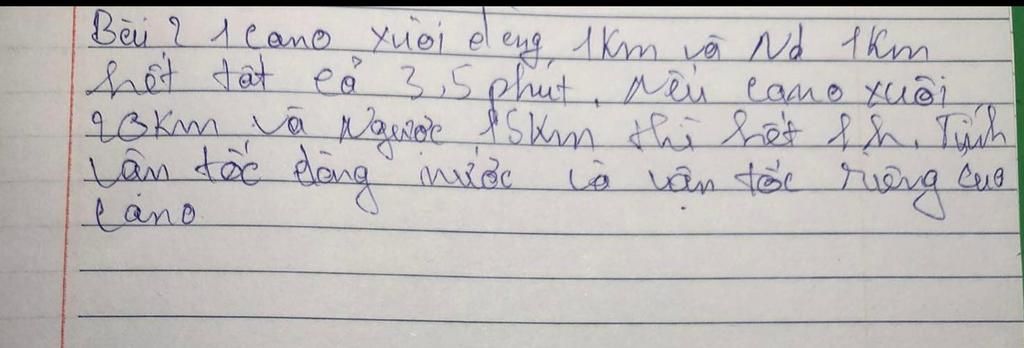 Bài 2 1 cano xuôi dòng 1Km và Nd 1Km
hết tất cả 3,5 phút. Nếu cano xuôi
20Km và Ngược 15Km thì hết 1h. Tính
vận tốc dòng nước và vận tốc riêng của
cano